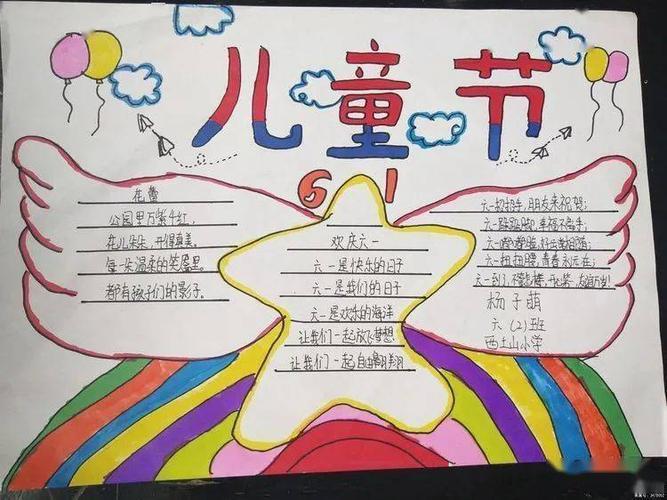 儿童节
6 1
花蕾
公园里万紫千红,
花儿朵朵,开得真美。
每一朵温柔的笑靥里
都有孩子们的影子。
欢庆六一
六一是快乐的日子
六一是我们的日子
六一是欢乐的海洋
让我们一起放飞梦想
让我们一起自由翱翔
六一招招手,朋友来祝贺;
六一跺跺脚,幸福不急手;
六一扭扭腰,青春永远在;
六一到了,
杨子萌
六(2)班
西土山小学